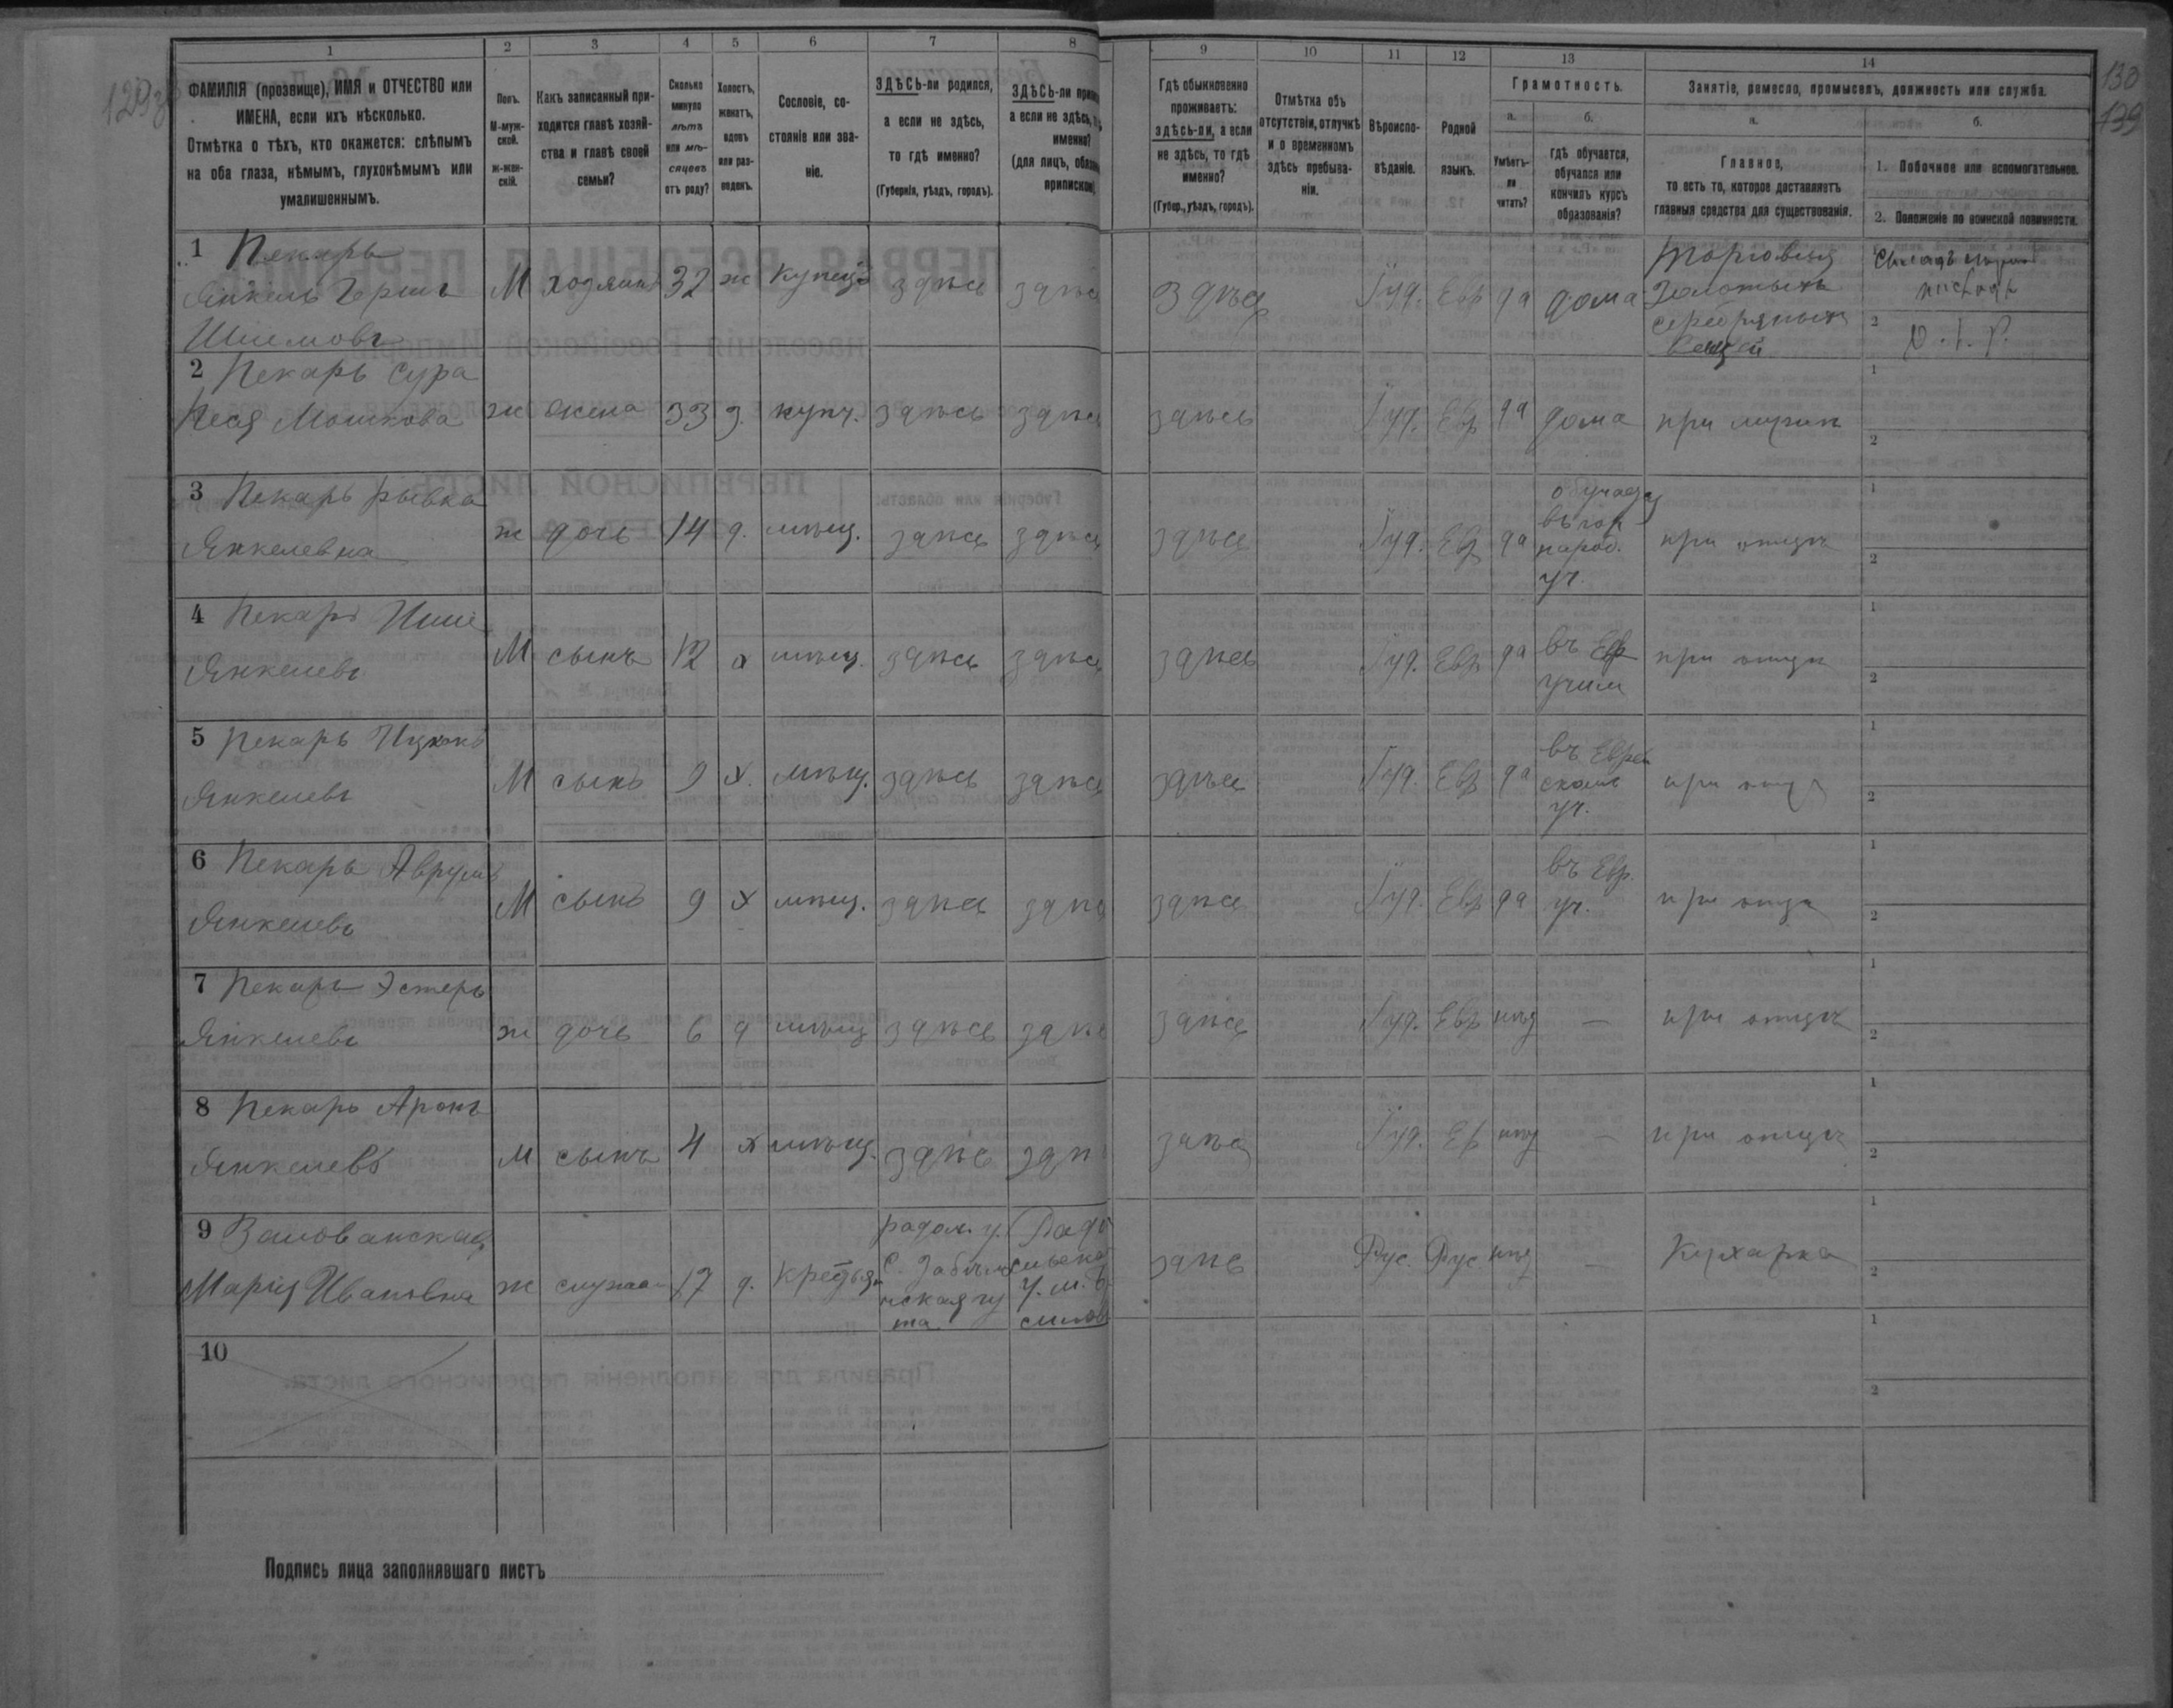 129 об
130
139
1
2
3
4
5
6
7
8
9
10
11
12
13
14
ФАМИЛІЯ (прозвище), ИМЯ и ОТЧЕСТВО или
ИМЕНА, если ихъ нѣсколько.
Отмѣтка о тѣхъ, кто окажется: слѣпымъ
на оба глаза, нѣмымъ, глухонѣмымъ или
умалишеннымъ.
Полъ.
М-муж-
ской.
ж-жен-
скій.
Какъ записанный при-
ходится главѣ хозяй-
ства и главѣ своей
семьи?
Сколько
минуло
лѣтъ
или мѣ-
сяцевъ
отъ роду?
Холостъ,
женатъ,
вдовъ
или раз-
веденъ.
Сословіе, со-
стояніе или зва-
ніе.
ЗДѢСЬ-ли родился,
а если не здѣсь,
то гдѣ именно?
(Губернія, уѣздъ, городъ).
ЗДѢСЬ-ли
а если не здѣсь,
именно?
(для лицъ,
припискою
Гдѣ обыкновенно
проживаетъ:
здѣсь-ли, а если
не здѣсь, то гдѣ
именно?
(Губер., уѣздъ, городъ).
Отмѣтка объ
отсутствіи, отлучкѣ
и о временномъ
здѣсь пребыва-
ніи.
Вѣроиспо-
вѣданіе.
Родной
языкъ.
Грамотность.
а.
Умѣетъ-
ли
читать?
б.
гдѣ обучается,
обучался или
кончилъ курсъ
образованія?
Занятіе, ремесло, промыселъ, должность или служба.
а.
Главное,
то есть то, которое доставляетъ
главныя средства для существованія.
б.
1. Побочное или вспомогательное.
2. Положеніе по воинской повинности.
1 Пекарь
Янкель Гершъ
Шиемовъ
М хозяинъ 32 ж купецъ здѣсь здѣсь здѣсь Іуд. Евр да дома
Торговецъ
Золотыхъ
серебряныхъ
вещей
2
2 Пекарь Сура
Песя Мошкова
ж жена 33 з. купч. здѣсь здѣсь здѣсь Іуд. Евр да дома при мужѣ
1
2
3 Пекарь Рывка
Янкелевна
ж дочь 14 д. мѣщ. здѣсь здѣсь здѣсь Іуд. Евр да
обучается
въ гор
народ.
уч.
при отцѣ
1
2
4 Пекарь
Янкелевъ
М сынъ 12 х мѣщ. здѣсь здѣсь здѣсь Іуд. Евр да
въ Евр
учил
при отцѣ
1
2
5 Пекарь Ицхокъ
Янкелевъ
М сынъ 9 х. мѣщ. здѣсь здѣсь здѣсь Іуд. Евр да
въ Еврей
скомъ
уч.
при отцѣ
1
2
6 Пекарь Аврумъ
Янкелевъ
М сынъ 9 х мѣщ. здѣсь здѣсь здѣсь Іуд. Евр да
въ Евр.
уч.
при отцѣ
1
2
7 Пекарь Эстеръ
Янкелевъ
ж дочь 6 д мѣщ здѣсь здѣсь здѣсь Іуд. Евр нѣт — при отцѣ
1
2
8 Пекарь Аронъ
Янкелевъ
М сынъ 4 х мѣщ. здѣсь здѣсь здѣсь Іуд. Ев нѣт — при отцѣ
1
2
9
Марія Ивановна
ж 17 д. крестьян
радом. у.
здѣсь Рус. Рус. нѣт — Кухарка
1
2
10
1
2
Подпись лица заполнявшаго листъ